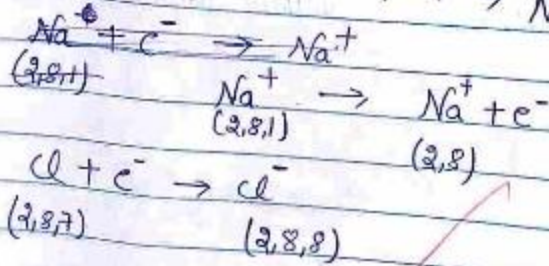 Na + e⁻ → Na⁺
(2,8,1)
Na⁺ → Na⁺ + e⁻
(2,8,1) (2,8)
Cl + e⁻ → Cl⁻
(2,8,7) (2,8,8)